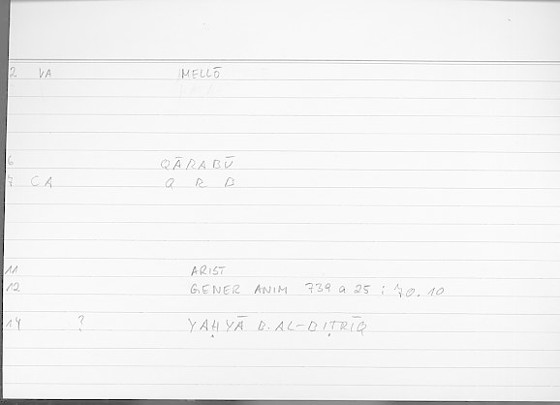 2 VA MELLŌ
6 QĀRABŪ
7 CA Q R B
11 ARIST
12 GENER ANIM 739 a 25 : 70.10
14 ? YAḤYĀ B. AL-BIṬRĪQ